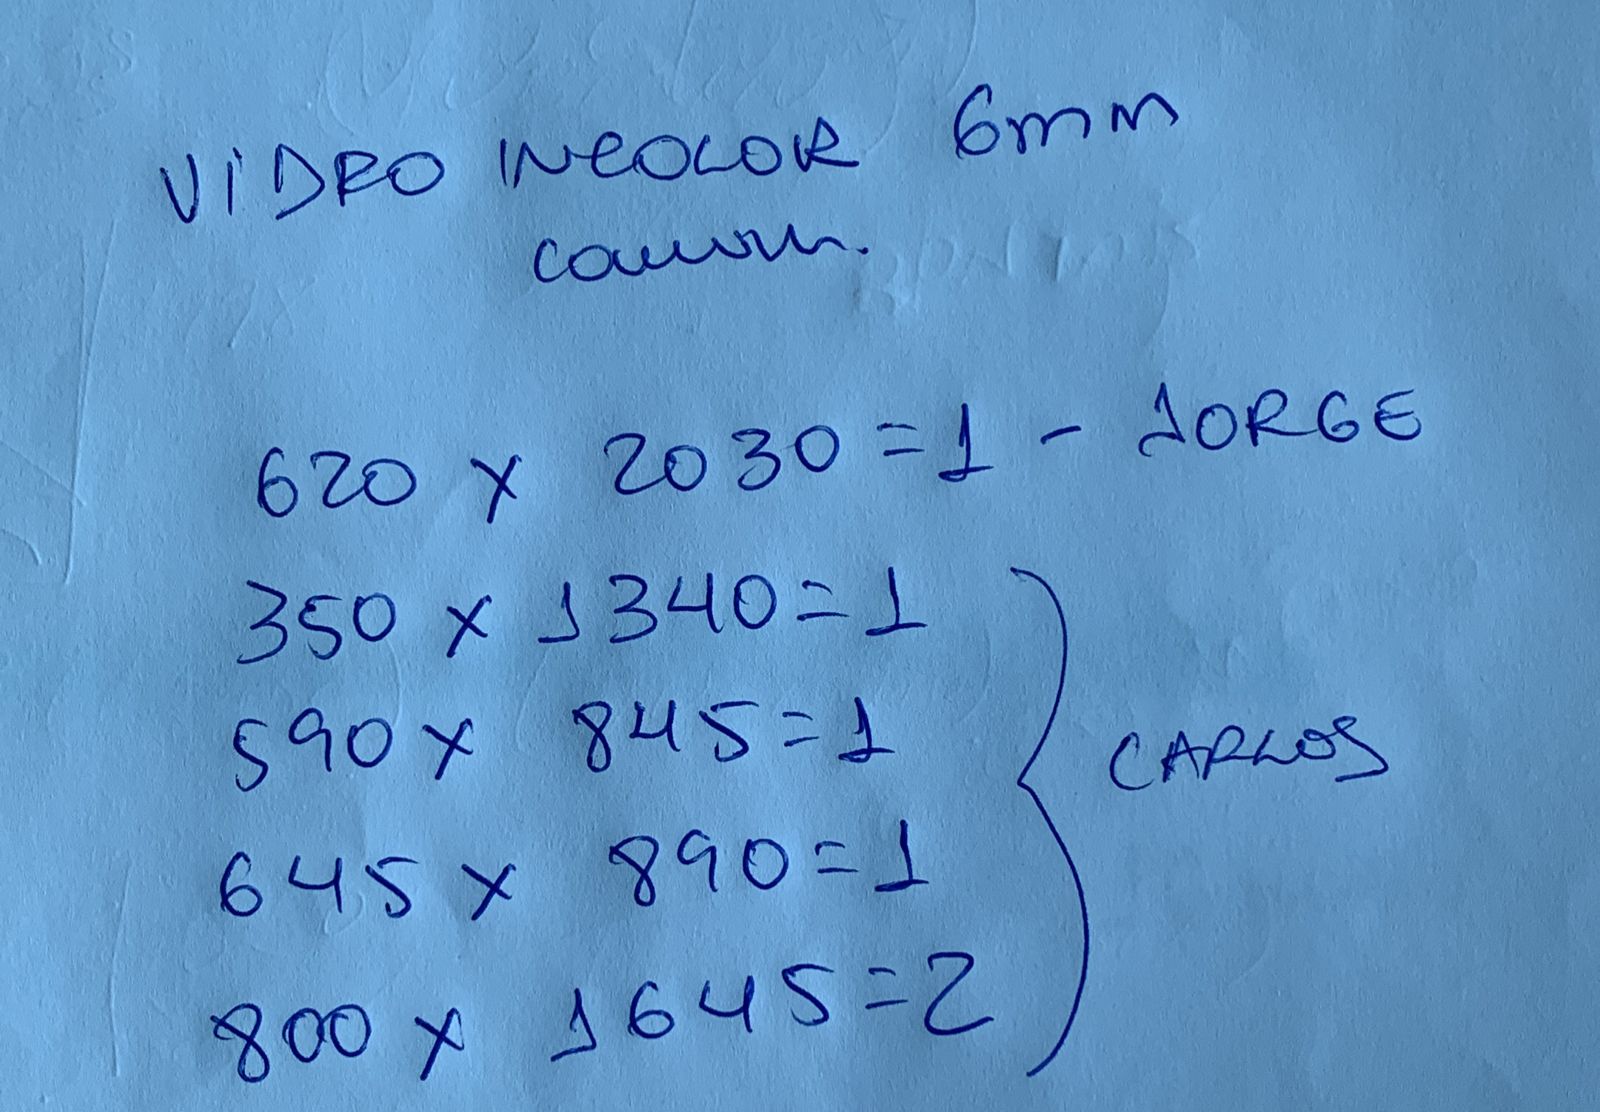 VIDRO INCOLOR 6mm
comum.
620 x 2030 = 1 - JORGE
350 x 1340 = 1
590 x 845 = 1
CARLOS
645 x 890 = 1
800 x 1645 = 2